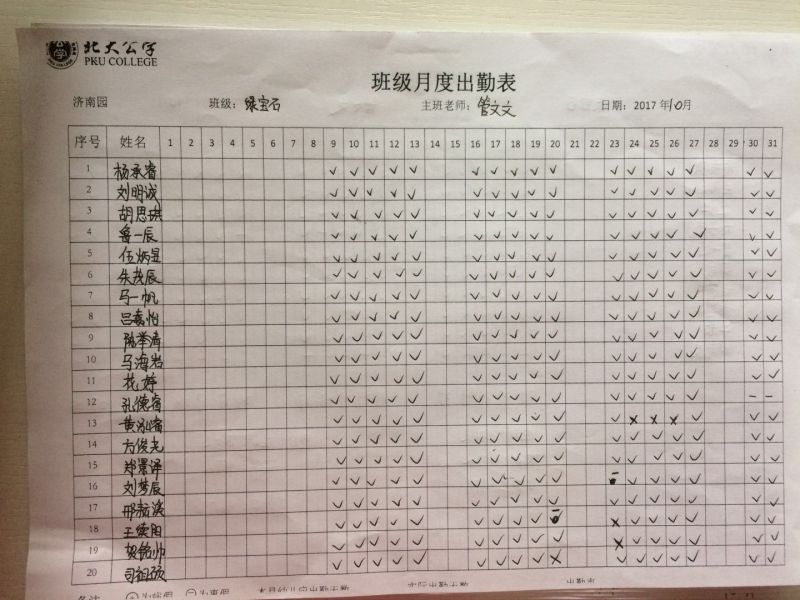 北大公学
PKU COLLEGE
班级月度出勤表
济南园 班级：绿宝石 主班老师：管文文 日期：2017 年10月
序号 姓名 1 2 3 4 5 6 7 8 9 10 11 12 13 14 15 16 17 18 19 20 21 22 23 24 25 26 27 28 29 30 31
1 杨承睿 ✓ ✓ ✓ ✓ ✓ ✓ ✓ ✓ ✓ ✓ ✓ ✓ ✓ ✓ ✓ ✓ ✓
2 刘明诚 ✓ ✓ ✓ ✓ ✓ ✓ ✓ ✓ ✓ ✓ ✓ ✓ ✓ ✓ ✓ ✓ ✓
3 胡思琪 ✓ ✓ ✓ ✓ ✓ ✓ ✓ ✓ ✓ ✓ ✓ ✓ ✓ ✓ ✓ ✓ ✓
4 鲁一辰 ✓ ✓ ✓ ✓ ✓ ✓ ✓ ✓ ✓ ✓ ✓ ✓ ✓ ✓ ✓ ✓ ✓
5 伍炳昱 ✓ ✓ ✓ ✓ ✓ ✓ ✓ ✓ ✓ ✓ ✓ ✓ ✓ ✓ ✓ ✓ ✓
6 朱茂辰 ✓ ✓ ✓ ✓ ✓ ✓ ✓ ✓ ✓ ✓ ✓ ✓ ✓ ✓ ✓ ✓ ✓
7 马一帆 ✓ ✓ ✓ ✓ ✓ ✓ ✓ ✓ ✓ ✓ ✓ ✓ ✓ ✓ ✓ ✓ ✓
8 吕嘉怡 ✓ ✓ ✓ ✓ ✓ ✓ ✓ ✓ ✓ ✓ ✓ ✓ ✓ ✓ ✓ ✓ ✓
9 陈举涛 ✓ ✓ ✓ ✓ ✓ ✓ ✓ ✓ ✓ ✓ ✓ ✓ ✓ ✓ ✓ ✓ ✓
10 马海岩 ✓ ✓ ✓ ✓ ✓ ✓ ✓ ✓ ✓ ✓ ✓ ✓ ✓ ✓ ✓ ✓ ✓
11 花婷 ✓ ✓ ✓ ✓ ✓ ✓ ✓ ✓ ✓ ✓ ✓ ✓ ✓ ✓ ✓ ✓ ✓
12 孔德睿 ✓ ✓ ✓ ✓ ✓ ✓ ✓ ✓ ✓ ✓ ✓ ✓ ✓ ✓ ✓ – –
13 黄泓睿 ✓ ✓ ✓ ✓ ✓ ✓ ✓ ✓ ✓ ✓ ✓ × × × ✓ ✓ ✓
14 方俊光 ✓ ✓ ✓ ✓ ✓ ✓ ✓ ✓ ✓ ✓ ✓ ✓ ✓ ✓ ✓ ✓ ✓
15 郑景译 ✓ ✓ ✓ ✓ ✓ ✓ ✓ ✓ ✓ ✓ ✓ ✓ ✓ ✓ ✓ ✓ ✓
16 刘梦辰 ✓ ✓ ✓ ✓ ✓ ✓ ✓ ✓ ✓ ✓ ✓ ✓ ✓ ✓ ✓ ✓
17 邢 ✓ ✓ ✓ ✓ ✓ ✓ ✓ ✓ ✓ ✓ ✓ ✓ ✓ ✓ ✓ ✓ ✓
18 王奕阳 ✓ ✓ ✓ ✓ ✓ ✓ ✓ ✓ ✓ × ✓ ✓ ✓ ✓ ✓ ✓
19 贺铭帅 ✓ ✓ ✓ ✓ ✓ ✓ ✓ ✓ ✓ ✓ × ✓ ✓ ✓ ✓ ✓ ✓
20 司祖硕 ✓ ✓ ✓ ✓ ✓ ✓ ✓ ✓ ✓ × ✓ ✓ ✓ ✓ ✓ ✓ ✓